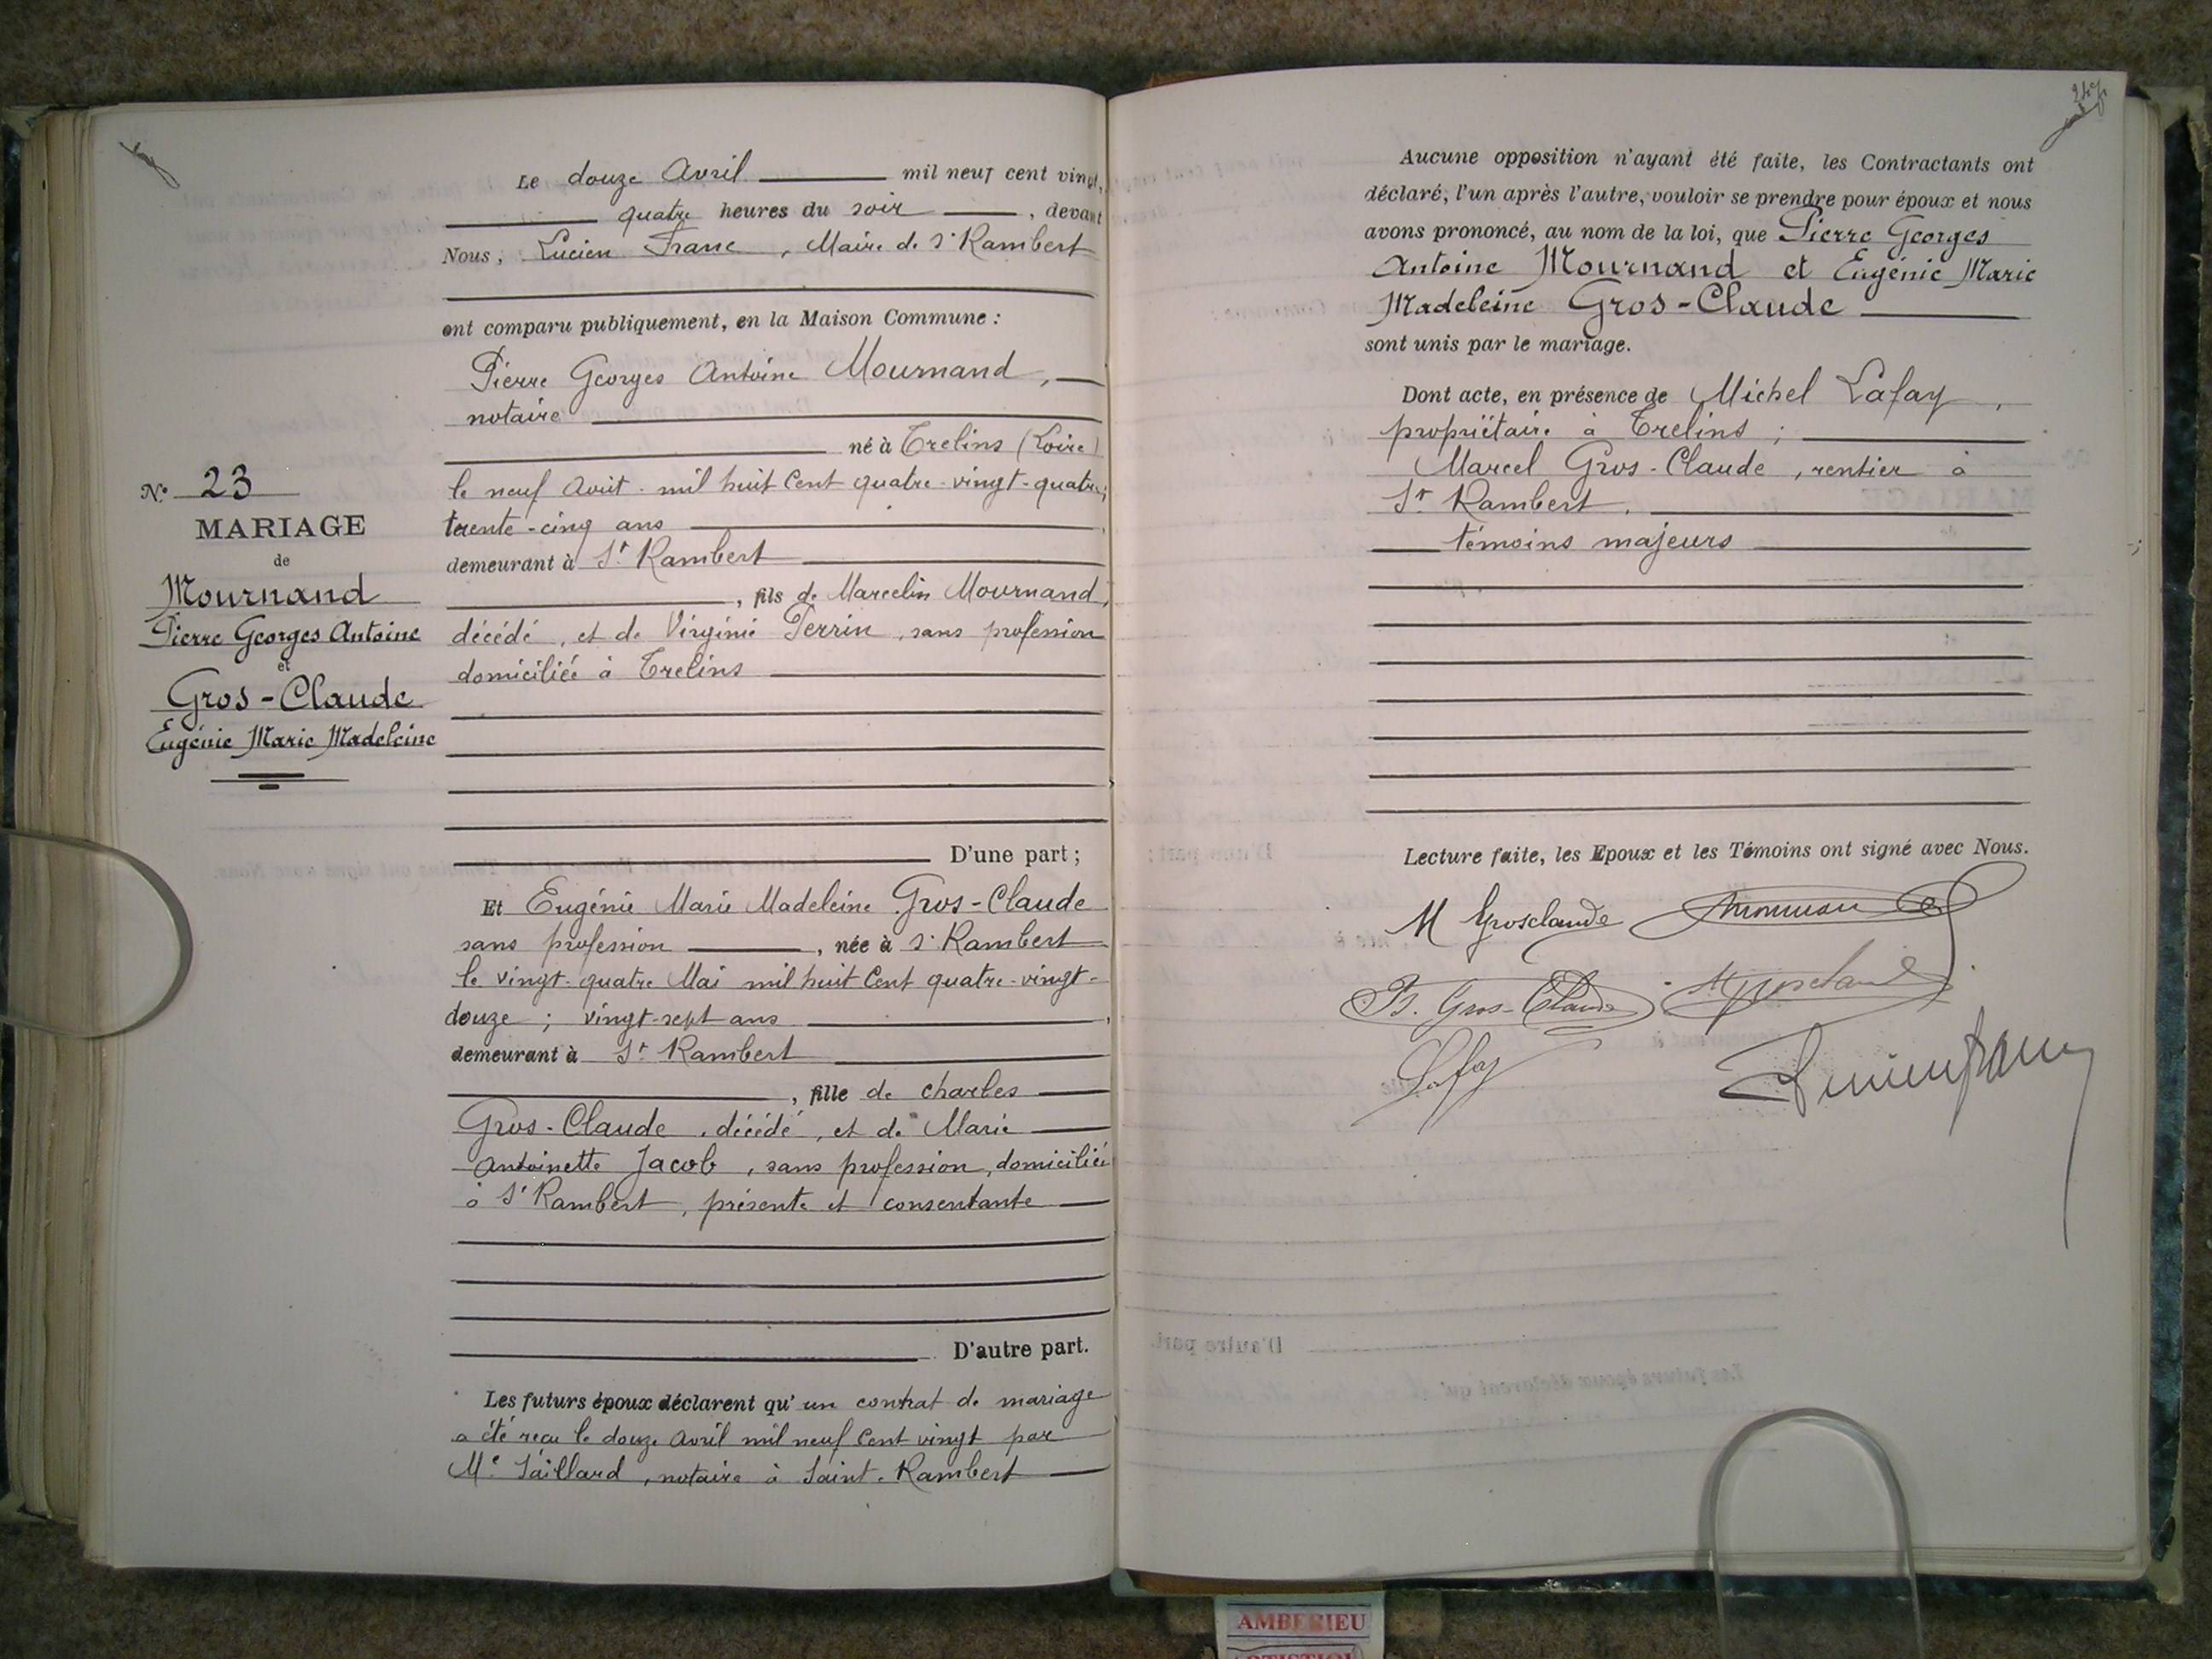 Le douze Avril mil neuf cent vingt,
quatre heures du soir, devant
Nous, Lucien Franc, Maire de St Rambert
ont comparu publiquement, en la Maison Commune :
Pierre Georges Antoine Mournand,
notaire
né à Trelins (Loire)
le neuf Août mil huit Cent quatre-vingt-quatre;
trente-cinq ans
demeurant à St Rambert
, fils de Marcelin Mournand,
décédé, et de Virginie Perrin, sans profession
domiciliée à Trelins
D'une part ;
Et Eugénie Marie Madeleine Gros-Claude
sans profession, née à St Rambert
le vingt-quatre Mai mil huit Cent quatre-vingt-
douze ; vingt-sept ans
demeurant à St Rambert
, fille de Charles
Gros-Claude, décédé, et de Marie
Antoinette Jacob, sans profession, domiciliée
à St Rambert, présente et consentante
D'autre part.
Les futurs époux déclarent qu'un contrat de mariage
a été reçu le douze Avril mil neuf Cent vingt par
Me Saillard, notaire à Saint-Rambert
No 23
MARIAGE
de
Mournand
Pierre Georges Antoine
et
Gros-Claude
Eugénie Marie Madeleine
Aucune opposition n'ayant été faite, les Contractants ont
déclaré, l'un après l'autre, vouloir se prendre pour époux et nous
avons prononcé, au nom de la loi, que Pierre Georges
Antoine Mournand et Eugénie Marie
Madeleine Gros-Claude
sont unis par le mariage.
Dont acte, en présence de Michel Lafay,
propriétaire à Trelins ;
Marcel Gros-Claude, rentier à
St Rambert.
témoins majeurs
Lecture faite, les Epoux et les Témoins ont signé avec Nous.
M Grosclaude
B. Gros-Claude
Lafay
AMBERIEU